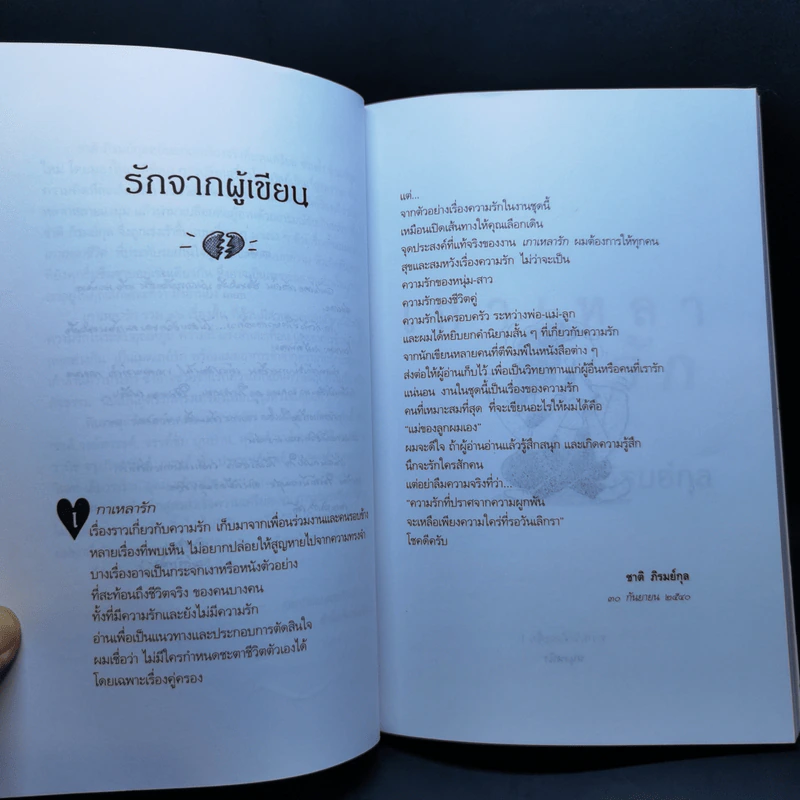 รักจากผู้เขียน
1
กาเหลารัก
เรื่องราวเกี่ยวกับความรัก เก็บมาจากเพื่อนร่วมงานและคนรอบข้าง
หลายเรื่องที่พบเห็น ไม่อยากปล่อยให้สูญหายไปจากความทรงจำ
บางเรื่องอาจเป็นกระจกเงาหรือหนังตัวอย่าง
ที่สะท้อนถึงชีวิตจริง ของคนบางคน
ทั้งที่มีความรักและยังไม่มีความรัก
อ่านเพื่อเป็นแนวทางและประกอบการตัดสินใจ
ผมเชื่อว่า ไม่มีใครกำหนดชะตาชีวิตตัวเองได้
โดยเฉพาะเรื่องคู่ครอง
แต่...
จากตัวอย่างเรื่องความรักในงานชุดนี้
เหมือนเปิดเส้นทางให้คุณเลือกเดิน
จุดประสงค์ที่แท้จริงของงาน เกาเหลารัก ผมต้องการให้ทุกคน
สุขและสมหวังเรื่องความรัก ไม่ว่าจะเป็น
ความรักของหนุ่ม-สาว
ความรักของชีวิตคู่
ความรักในครอบครัว ระหว่างพ่อ-แม่-ลูก
และผมได้หยิบยกคำนิยามสั้น ๆ ที่เกี่ยวกับความรัก
จากนักเขียนหลายคนที่ตีพิมพ์ในหนังสือต่าง ๆ
ส่งต่อให้ผู้อ่านเก็บไว้ เพื่อเป็นวิทยาทานแก่ผู้อื่นหรือคนที่เรารัก
แน่นอน งานในชุดนี้เป็นเรื่องของความรัก
คนที่เหมาะสมที่สุด ที่จะเขียนอะไรให้ผมได้คือ
“แม่ของลูกผมเอง”
ผมจะดีใจ ถ้าผู้อ่านอ่านแล้วรู้สึกสนุก และเกิดความรู้สึก
นึกจะรักใครสักคน
แต่อย่าลืมความจริงที่ว่า...
“ความรักที่ปราศจากความผูกพัน
จะเหลือเพียงความใคร่ที่รอวันเลิกรา”
โชคดีครับ
ชาติ ภิรมย์กุล
๓๐ กันยายน ๒๕๔๐